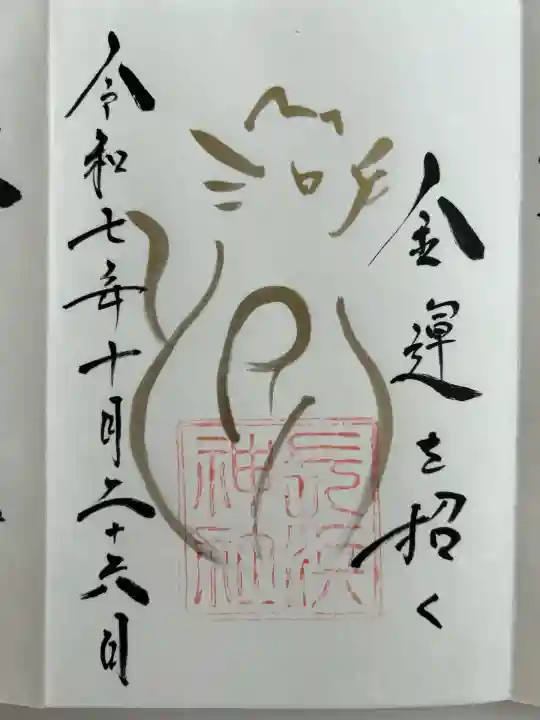 金運を招く
長浜
神社
令和七年十月二十六日